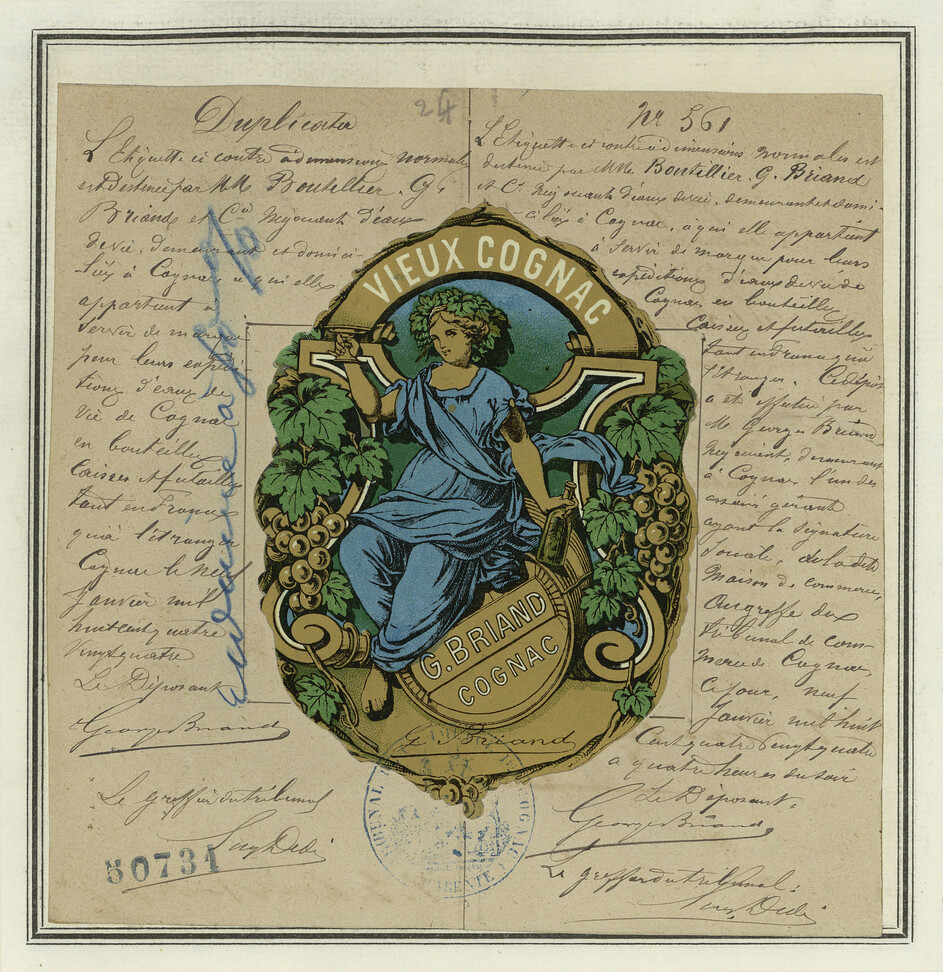 24
Duplicata
L'Etiquette ci contre à dimensions normales
est destinée par MM Boutillier. G.
Briand et Cie Négociants d'eaux
de vie, demeurant et domici-
liés à Cognac à qui elle
appartient à
servir de marque
pour leurs expédi-
tions d'eaux de
vie de Cognac
en bouteilles
Caisses et futailles
tant en France
qu'à l'étranger
Cognac le neuf
Janvier mil
huit cent quatre
vingt quatre
Le Déposant
Georges Briand
Le greffier du tribunal
50731
No 561
L'Etiquette ci contre à dimensions normales est
destinée par MM Boutillier. G. Briand
et Cie Négociants d'eaux de vie, demeurant et domi-
ciliés à Cognac, à qui elle appartient
à servir de marque pour leurs
expéditions d'eaux de vie de
Cognac en bouteilles
Caisses et futailles
tant en France qu'à
l'étranger. Ce dépôt
a été effectué par
M Georges Briand
Négociant, demeurant
à Cognac, l'un des
associés gérants
ayant la signature
sociale, de la dite
Maison de commerce,
au greffe du
tribunal de com-
merce de Cognac,
ce jour, neuf
Janvier mil huit
Cent quatre vingt quatre
à quatre heures du soir
Le Déposant.
Georges Briand
Le greffier du tribunal:
VIEUX COGNAC
G. BRIAND
COGNAC
G. Briand
TRIBUNAL COGNAC
CHARENTE